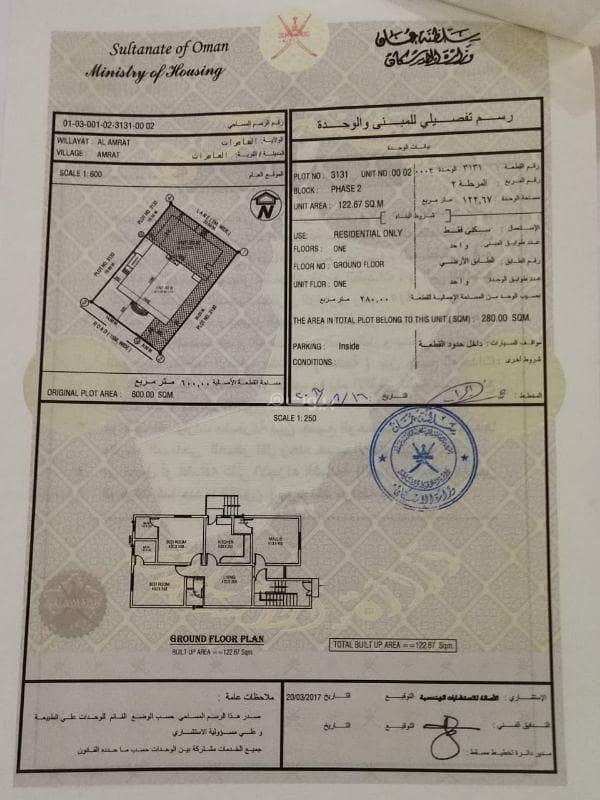 Sultanate of Oman
Ministry of Housing
سلطنة عمان
وزارة الإسكان
01-03-001-02-3131-00 02 رقم الرسم المساحي
WILLAYAT : AL AMRAT الولاية : العامرات
VILLAGE : AMRAT المدينة / القرية : العامرات
SCALE 1: 600 الموقع العام
N
PLOT NO. 3133
LAKE (15M WIDE)
PLOT NO. 3130
ROAD (15M WIDE)
مساحة القطعة الأصلية ٦٠٠,٠٠ متر مربع
ORIGINAL PLOT AREA : 600.00 SQM.
رسم تفصيلي للمبنى والوحدة
بيانات الوحدة
PLOT NO : 3131 UNIT NO :00 02 رقم القطعة: ٣١٣١ الوحدة ٠٠٠٢
BLOCK : PHASE 2 رقم المربع : المرحلة ٢
UNIT AREA : 122.67 SQ.M مساحة الوحدة ١٢٢,٦٧ متر مربع
شروط البناء
USE: RESIDENTIAL ONLY الإستعمال : سكني فقط
FLOORS : ONE عدد طوابق المبنى واحد
FLOOR NO : GROUND FLOOR رقم الطابق : الطابق الأرضي
UNIT FLOR : ONE عدد طوابق الوحدة : واحد
نصيب الوحدة من المساحة الإجمالية للقطعة ٢٨٠,٠٠ متر مربع
THE AREA IN TOTAL PLOT BELONG TO THIS UNIT (SQM) : 280.00 SQM.
PARKING : Inside مواقف السيارات : داخل حدود القطعة
CONDITIONS : شروط أخرى :
المخطط : التاريخ
SCALE 1: 250
سلطنة عمان
وزارة الإسكان
BED ROOM
KITCHEN
MAJLIS
BED ROOM
LIVING
GROUND FLOOR PLAN
BUILT UP AREA ==122.67 Sqm.
TOTAL BUILT UP AREA ==122.67 Sqm.
ملاحظات عامة :
صدر هذا الرسم المساحي حسب الوضع القائم للوحدات على الطبيعة
و على مسؤولية الاستشاري
جميع الخدمات مشتركة بين الوحدات حسب ما حدده القانون
الإستشاري : الأصالة للاستشارات الهندسية التوقيع التاريخ 20/03/2017
التدقيق الفني : التوقيع التاريخ
مدير دائرة تخطيط مسقط :